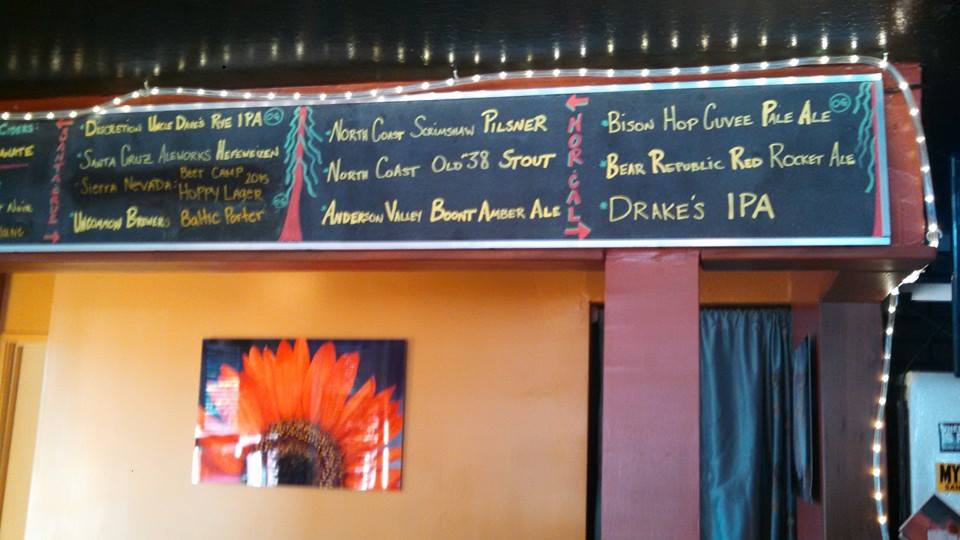 CIDERS:
SANTA CRUZ
• DISCRETION UNCLE DAVE'S RYE IPA OG
• SANTA CRUZ ALEWORKS HEFEWEIZEN
• SIERRA NEVADA: BEER CAMP 2015
HOPPY LAGER
• UNCOMMON BREWERS Baltic Porter OG
• NORTH COAST SCRIMSHAW PILSNER
• NORTH COAST OLD "38 STOUT
• ANDERSON VALLEY BOONT AMBER ALE
NOR-CAL
• BISON HOP CUVEE PALE ALE OG
• BEAR REPUBLIC RED ROCKET ALE
• DRAKE'S IPA
MY